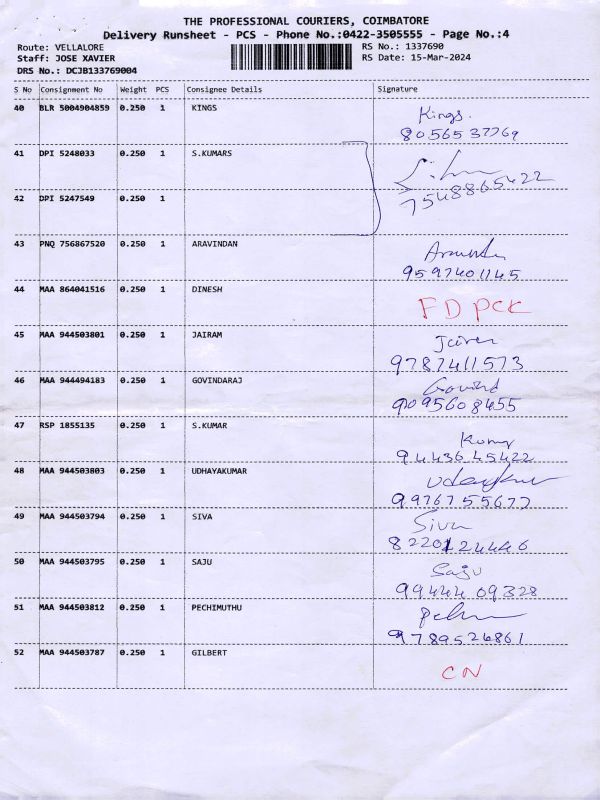 THE PROFESSIONAL COURIERS, COIMBATORE
Delivery Runsheet - PCS - Phone No.:0422-3505555 - Page No.:4
Route: VELLALORE RS No.: 1337690
Staff: JOSE XAVIER RS Date: 15-Mar-2024
DRS No.: DCJB133769004
S No Consignment No Weight PCS Consignee Details Signature
40 BLR 5004904859 0.250 1 KINGS Kings.
8056537769
41 DPI 5248033 0.250 1 S.KUMARS
7548865422
42 DPI 5247549 0.250 1
43 PNQ 756867520 0.250 1 ARAVINDAN
9597401145
44 MAA 864041516 0.250 1 DINESH FD PCK
45 MAA 944503801 0.250 1 JAIRAM
9787411573
46 MAA 944494183 0.250 1 GOVINDARAJ Govind
9095608455
47 RSP 1855135 0.250 1 S.KUMAR
9443645422
48 MAA 944503803 0.250 1 UDHAYAKUMAR
9976755677
49 MAA 944503794 0.250 1 SIVA Siva
8220124446
50 MAA 944503795 0.250 1 SAJU Saju
9944409328
51 MAA 944503812 0.250 1 PECHIMUTHU
9789526861
52 MAA 944503787 0.250 1 GILBERT CN